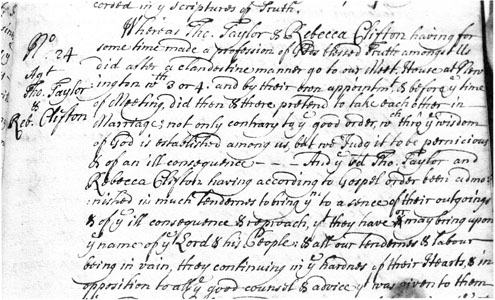 corded in yᵉ Scriptures of Truth.
Whereas Tho. Taylor & Rebecca Clifton having for
some time made a profession of this blessed Truth amongst Us
Did after a Clandestine manner go to our Meet. House at New-
ington wᵗʰ 3 or 4; and by their own appointmᵗ, & before yᵉ time
of Meeting, Did then & there pretend to take each other in
Marriage; not only contrary to yᵉ good order, wᶜʰ thro yᵉ wisdom
of God is established among us, but wᶜʰ we Judg it to be pernicious
& of an ill consequence - - - And yᵉ sd Tho. Taylor and
Rebecca Clifton having according to Gospel order been admo-
nished in much tendernes to bring yᵐ to a sence of their outgoings
& of yᵉ ill consequence & reproach, yᵗ they have & may bring upon
yᵉ name of yᵉ Lord & his People; & all our tendernes & labour
being in vain, they continuing in yᵉ hardnes of their Hearts, & in
opposition to all yᵉ good counsel & advice yᵗ was given to them
Nᵒ 24
Agᵗ
Tho. Taylor
&
Reb. Clifton